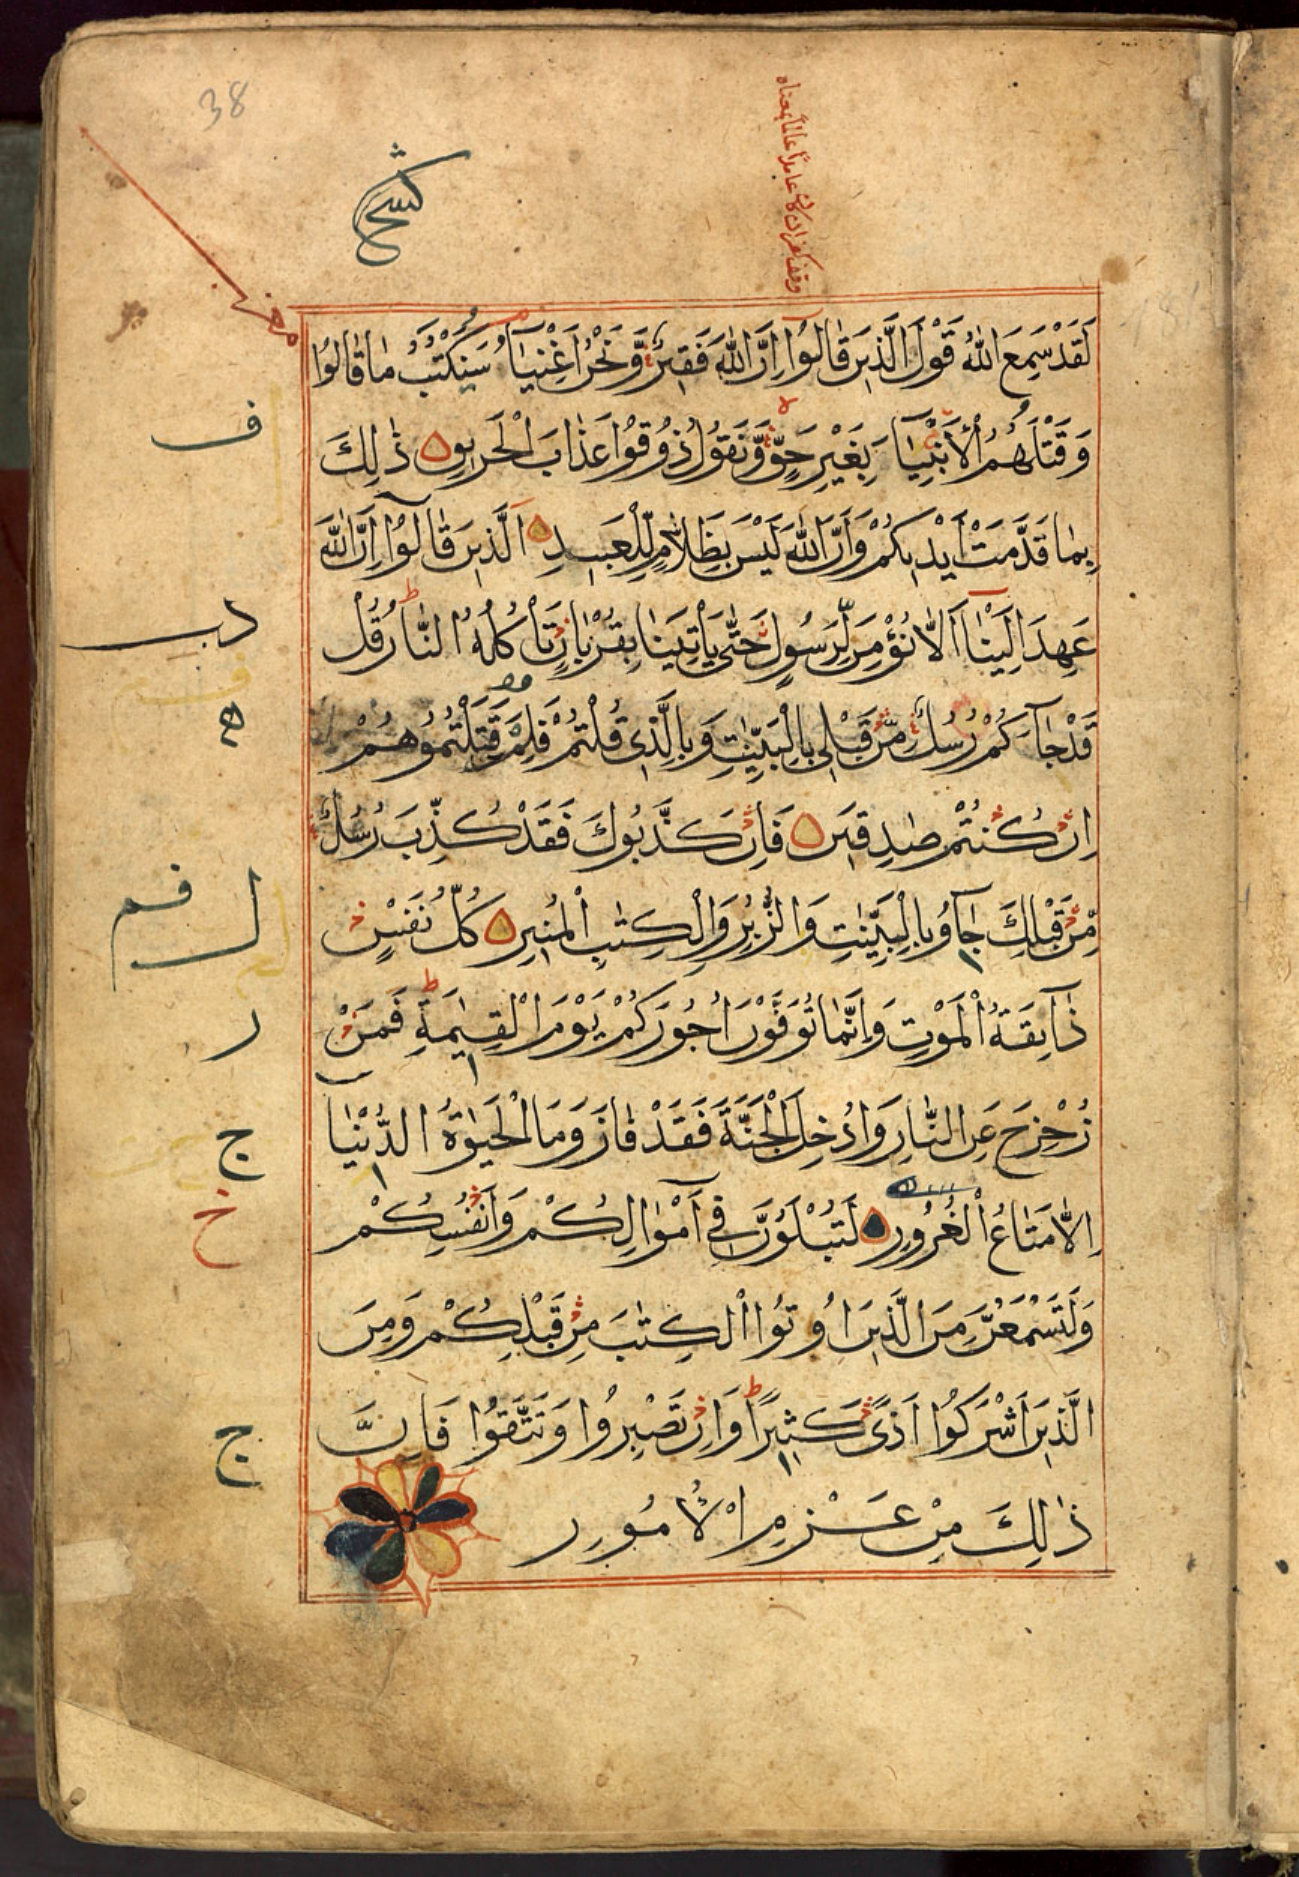 38
لَقَدْ سَمِعَ اللهُ قَوْلَ الَّذِينَ قَالُوا اِنَّ اللهَ فَقِيرٌ وَّنَحْنُ اَغْنِيَآءُ سَنَكْتُبُ مَا قَالُوا
وَقَتْلَهُمُ الْاَنْبِيَآءَ بِغَيْرِ حَقٍّ وَّنَقُولُ ذُوقُوا عَذَابَ الْحَرِيقِ ذٰلِكَ
ف
بِمَا قَدَّمَتْ اَيْدِيكُمْ وَاَنَّ اللهَ لَيْسَ بِظَلَّامٍ لِّلْعَبِيدِ اَلَّذِينَ قَالُوا اِنَّ اللهَ
عَهِدَ اِلَيْنَا اَلَّا نُؤْمِنَ لِرَسُولٍ حَتّٰى يَاْتِيَنَا بِقُرْبَانٍ تَاْكُلُهُ النَّارُ قُلْ
دب
قَدْ جَآءَكُمْ رُسُلٌ مِّنْ قَبْلِى بِالْبَيِّنٰتِ وَبِالَّذِى قُلْتُمْ فَلِمَ قَتَلْتُمُوهُمْ
اِنْ كُنْتُمْ صٰدِقِينَ فَاِنْ كَذَّبُوكَ فَقَدْ كُذِّبَ رُسُلٌ
مِّنْ قَبْلِكَ جَآءُو بِالْبَيِّنٰتِ وَالزُّبُرِ وَالْكِتٰبِ الْمُنِيرِ كُلُّ نَفْسٍ
ل فم
ذَآئِقَةُ الْمَوْتِ وَاِنَّمَا تُوَفَّوْنَ اُجُورَكُمْ يَوْمَ الْقِيٰمَةِ فَمَنْ
ر
زُحْزِحَ عَنِ النَّارِ وَاُدْخِلَ الْجَنَّةَ فَقَدْ فَازَ وَمَا الْحَيٰوةُ الدُّنْيَا
ج
اِلَّا مَتَاعُ الْغُرُورِ لَتُبْلَوُنَّ فِى اَمْوَالِكُمْ وَاَنْفُسِكُمْ
خ
وَلَتَسْمَعُنَّ مِنَ الَّذِينَ اُوتُوا الْكِتٰبَ مِنْ قَبْلِكُمْ وَمِنَ
الَّذِينَ اَشْرَكُوا اَذًى كَثِيرًا وَاِنْ تَصْبِرُوا وَتَتَّقُوا فَاِنَّ
ج
ذٰلِكَ مِنْ عَزْمِ الْاُمُورِ